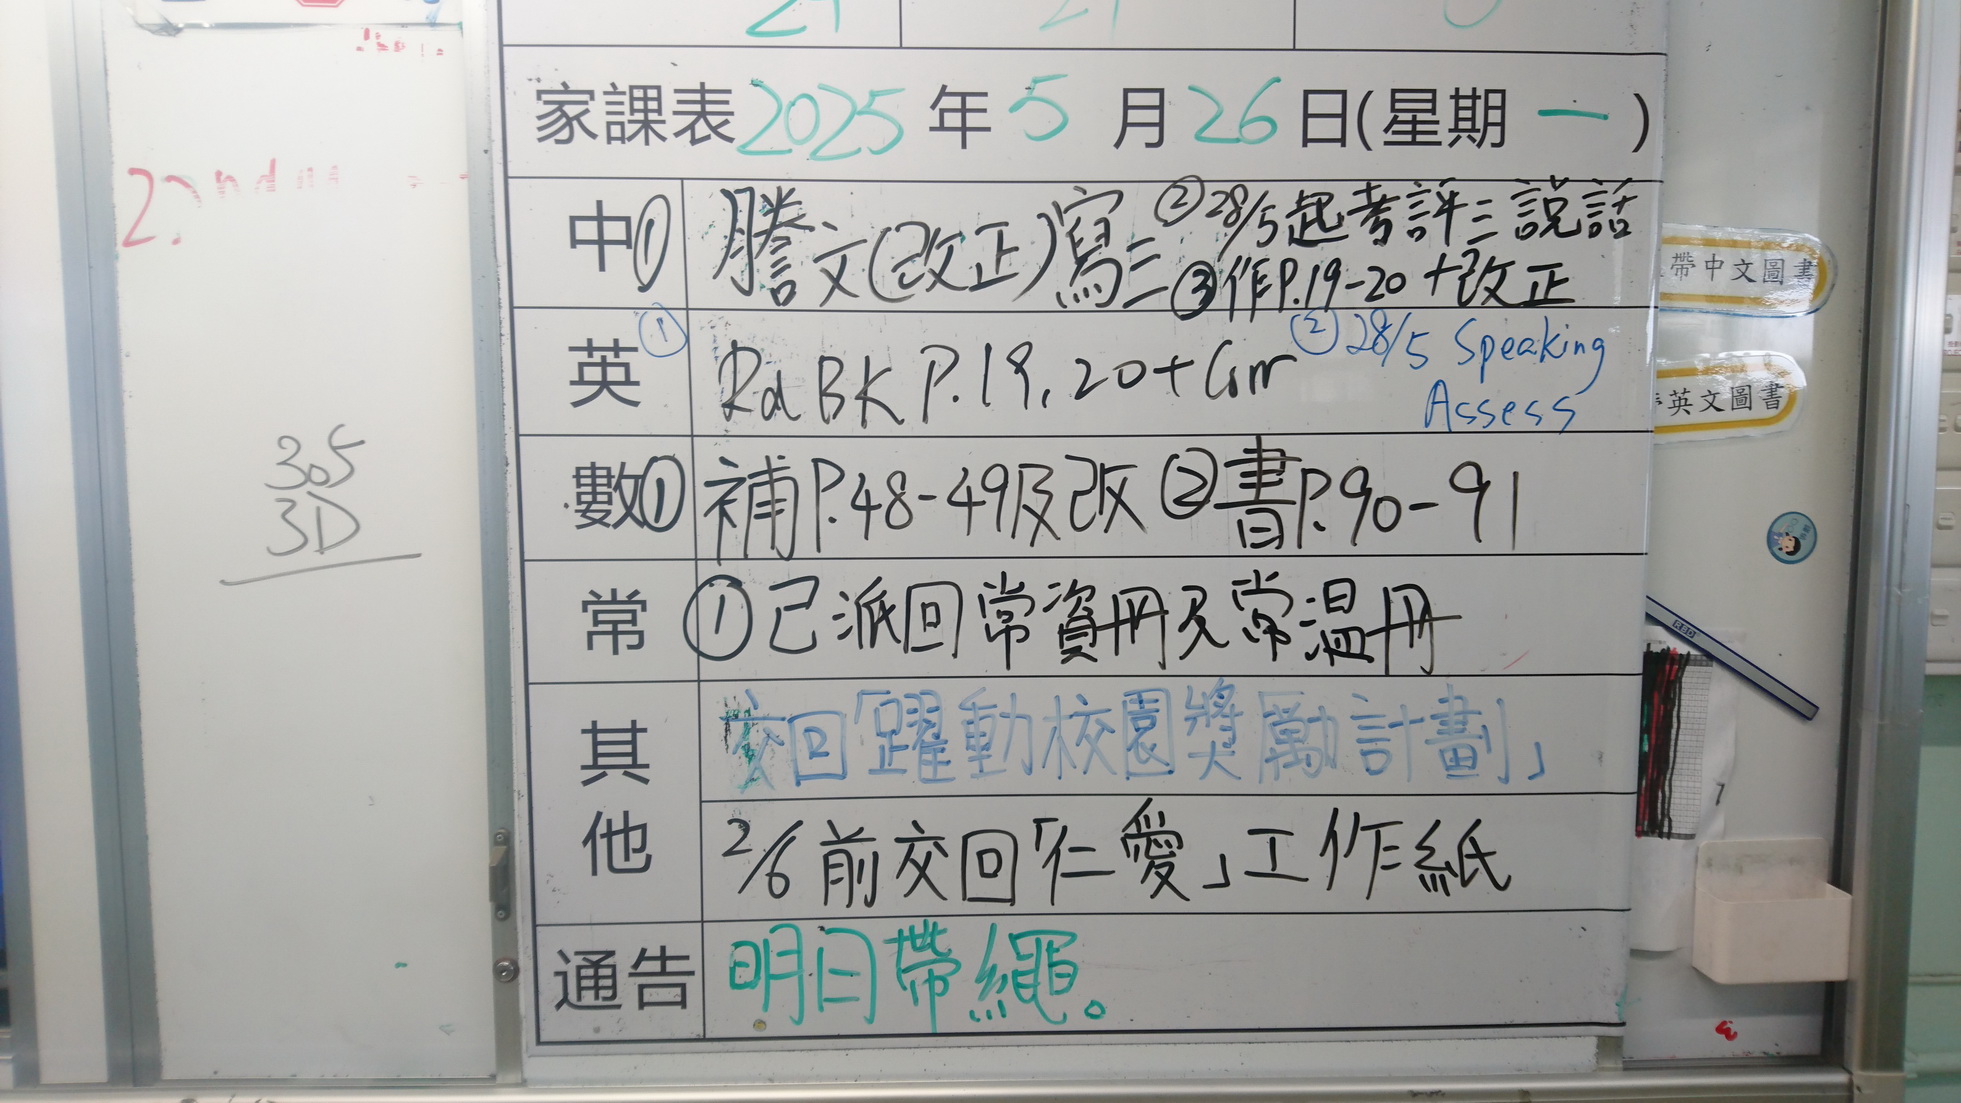 305
3D
家課表2025年5月26日(星期一)
中① 謄文(改正)寫三 ②28/5起考評三說話
③作P.19-20+改正
英① Rd BK P.19, 20+Gr ②28/5 Speaking
Assess
數① 補P.48-49及改 ②書P.90-91
常 ①已派回常資冊及常溫冊
其他 交回「躍動校園獎勵計劃」
2/6前交回「仁愛」工作紙
通告 明日帶繩。
帶中文圖書
英文圖書
RBD
7